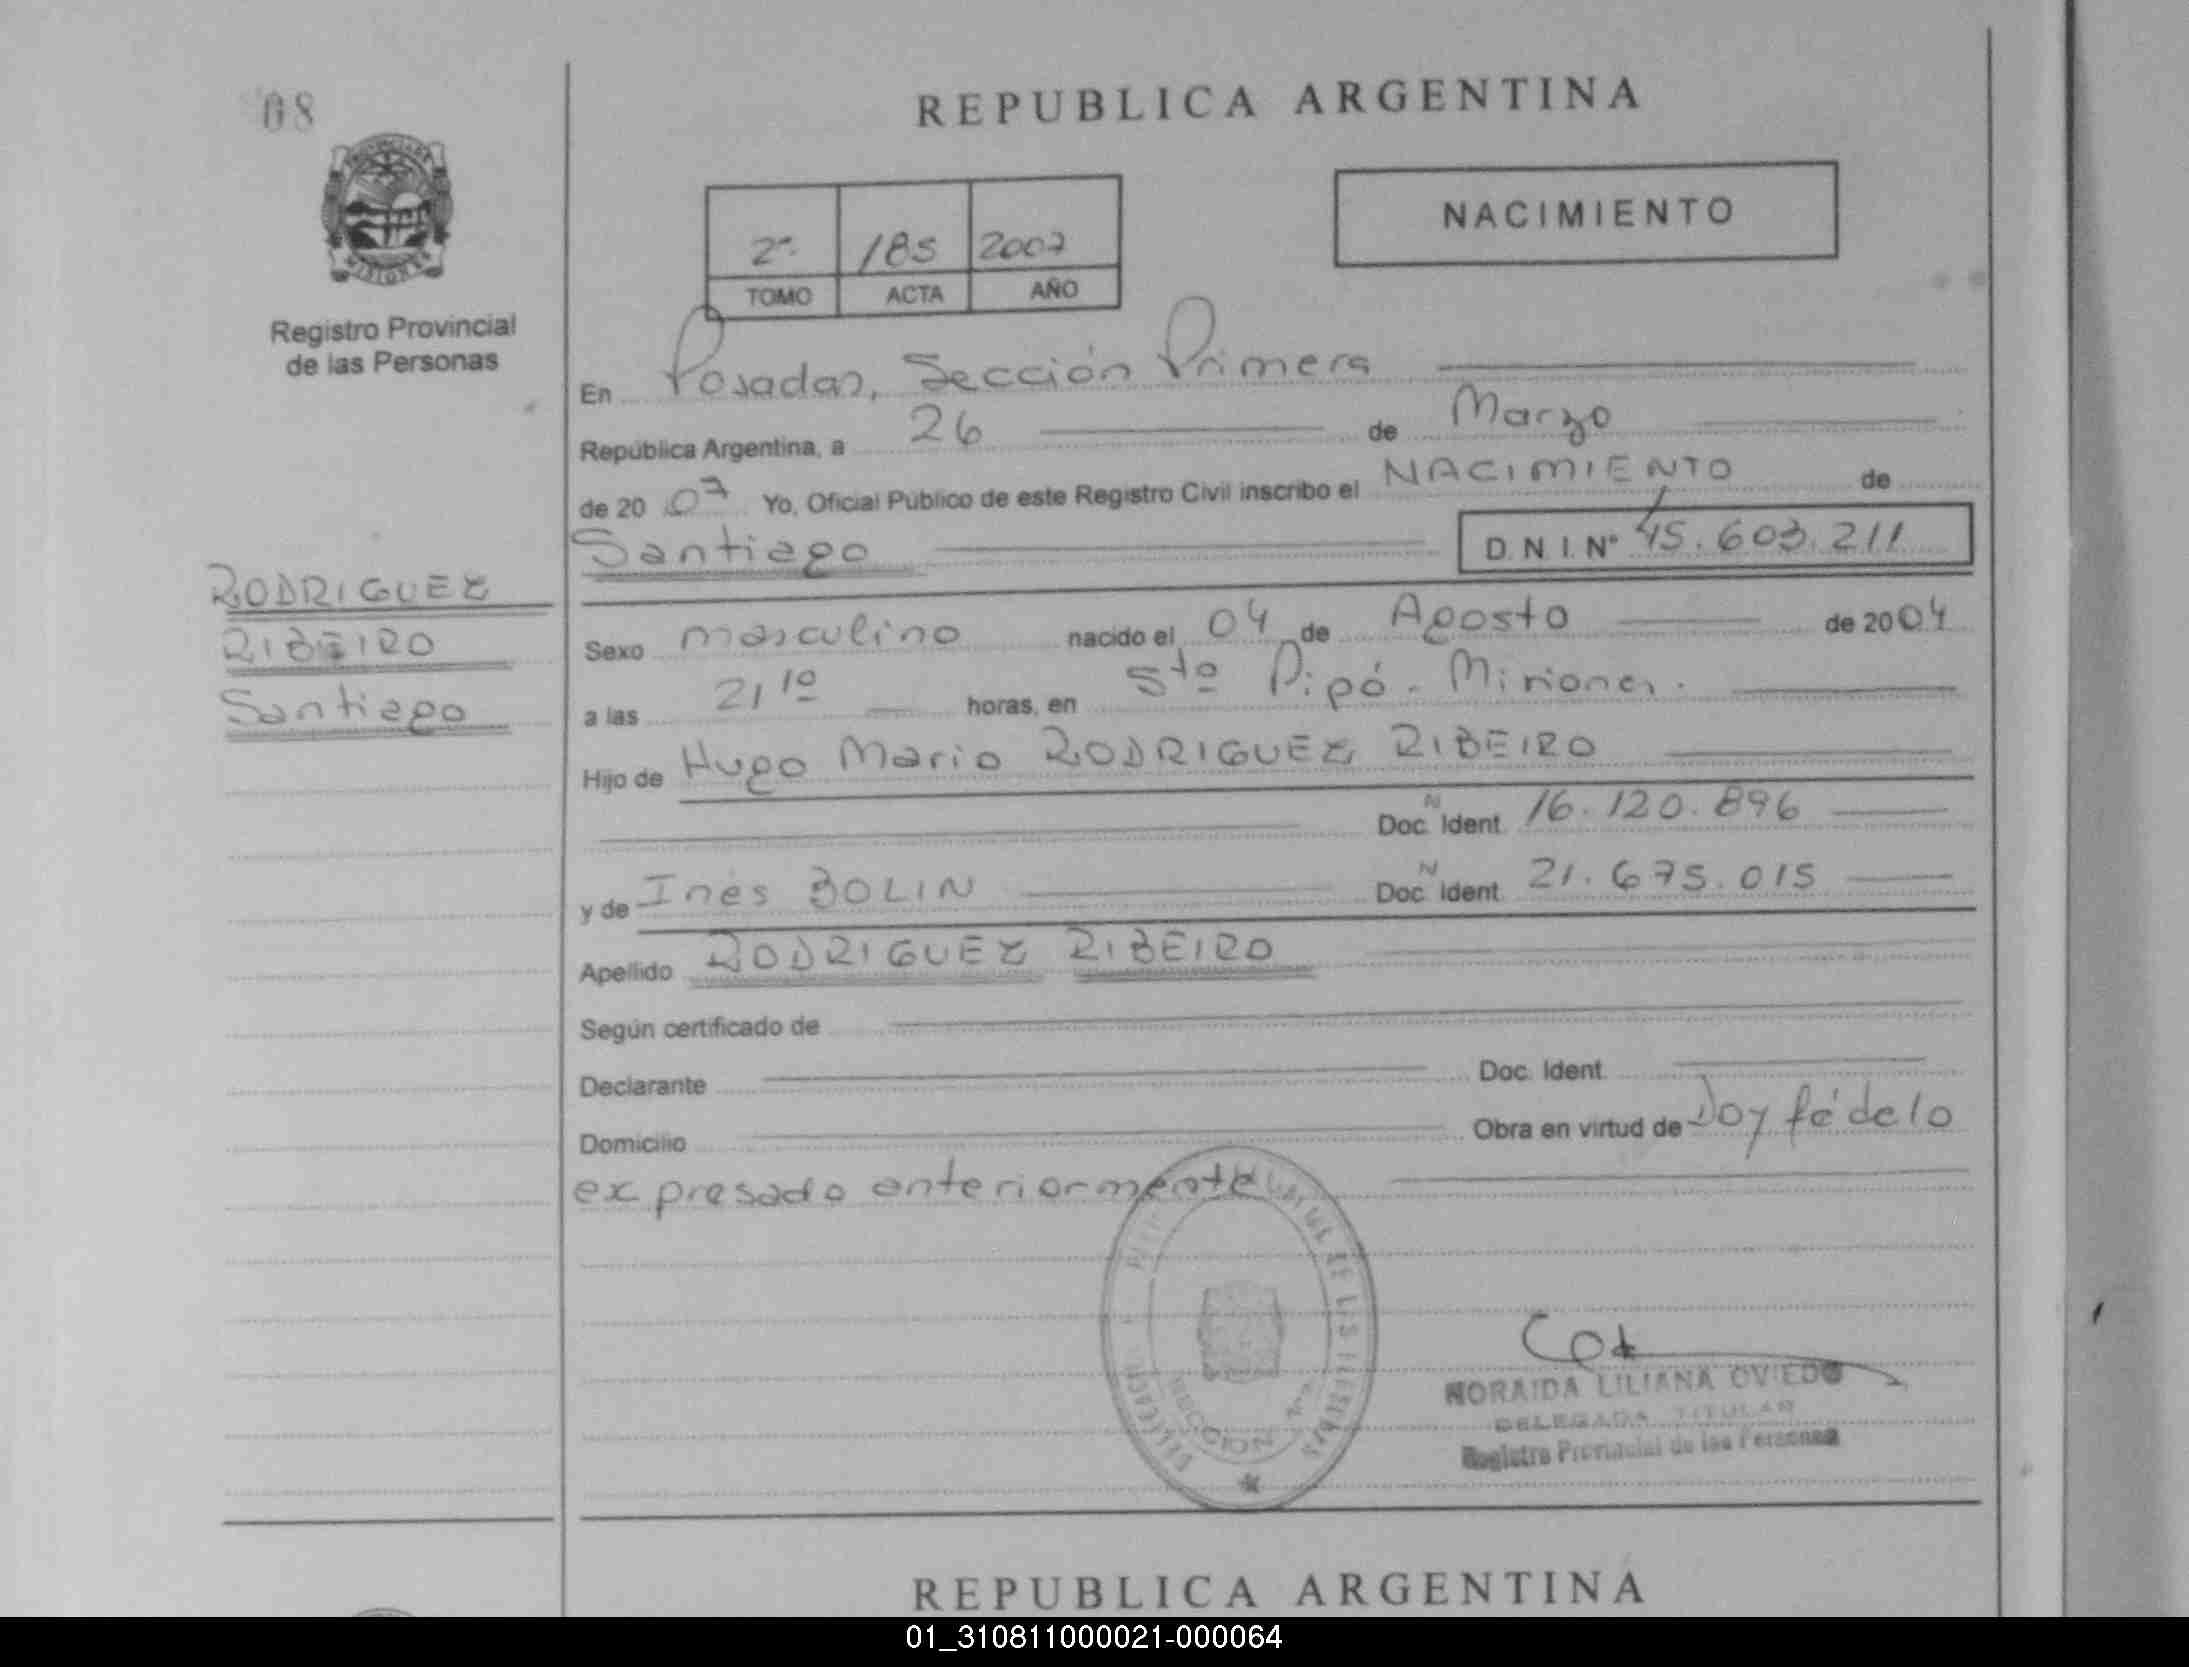 08
REPUBLICA ARGENTINA
NACIMIENTO
2º 185 2007
TOMO ACTA AÑO
PROVINCIA DE
MISIONES
Registro Provincial
de las Personas
En Posadas, Sección Primera
República Argentina, a 26 de Marzo
de 20 07 Yo, Oficial Público de este Registro Civil inscribo el NACIMIENTO de
Santiago D.N.I. Nº 45.603.211
RODRIGUEZ
RIBEIRO
Santiago
Sexo masculino nacido el 04 de Agosto de 2004
a las 21 10 horas, en Sto Pipó - Misiones.
Hijo de Hugo Mario RODRIGUEZ RIBEIRO
Doc. N Ident. 16.120.896
y de Inés BOLIN Doc. N Ident. 21.675.015
Apellido RODRIGUEZ RIBEIRO
Según certificado de
Declarante Doc. Ident.
Domicilio Obra en virtud de Doy fé de lo
expresado anteriormente
DE LAS PERSONAS
SECCION 1ra
NORAIDA LILIANA OVIEDO
DELEGADA TITULAR
Registro Provincial de las Personas
REPUBLICA ARGENTINA
01_310811000021-000064